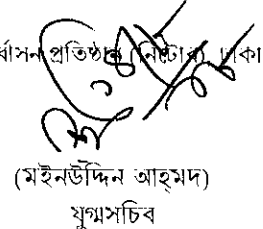 র্বাসন প্রতিষ্ঠান (নিটোর), ঢাকা
(মইনউদ্দিন আহ্‌মদ)
যুগ্মসচিব